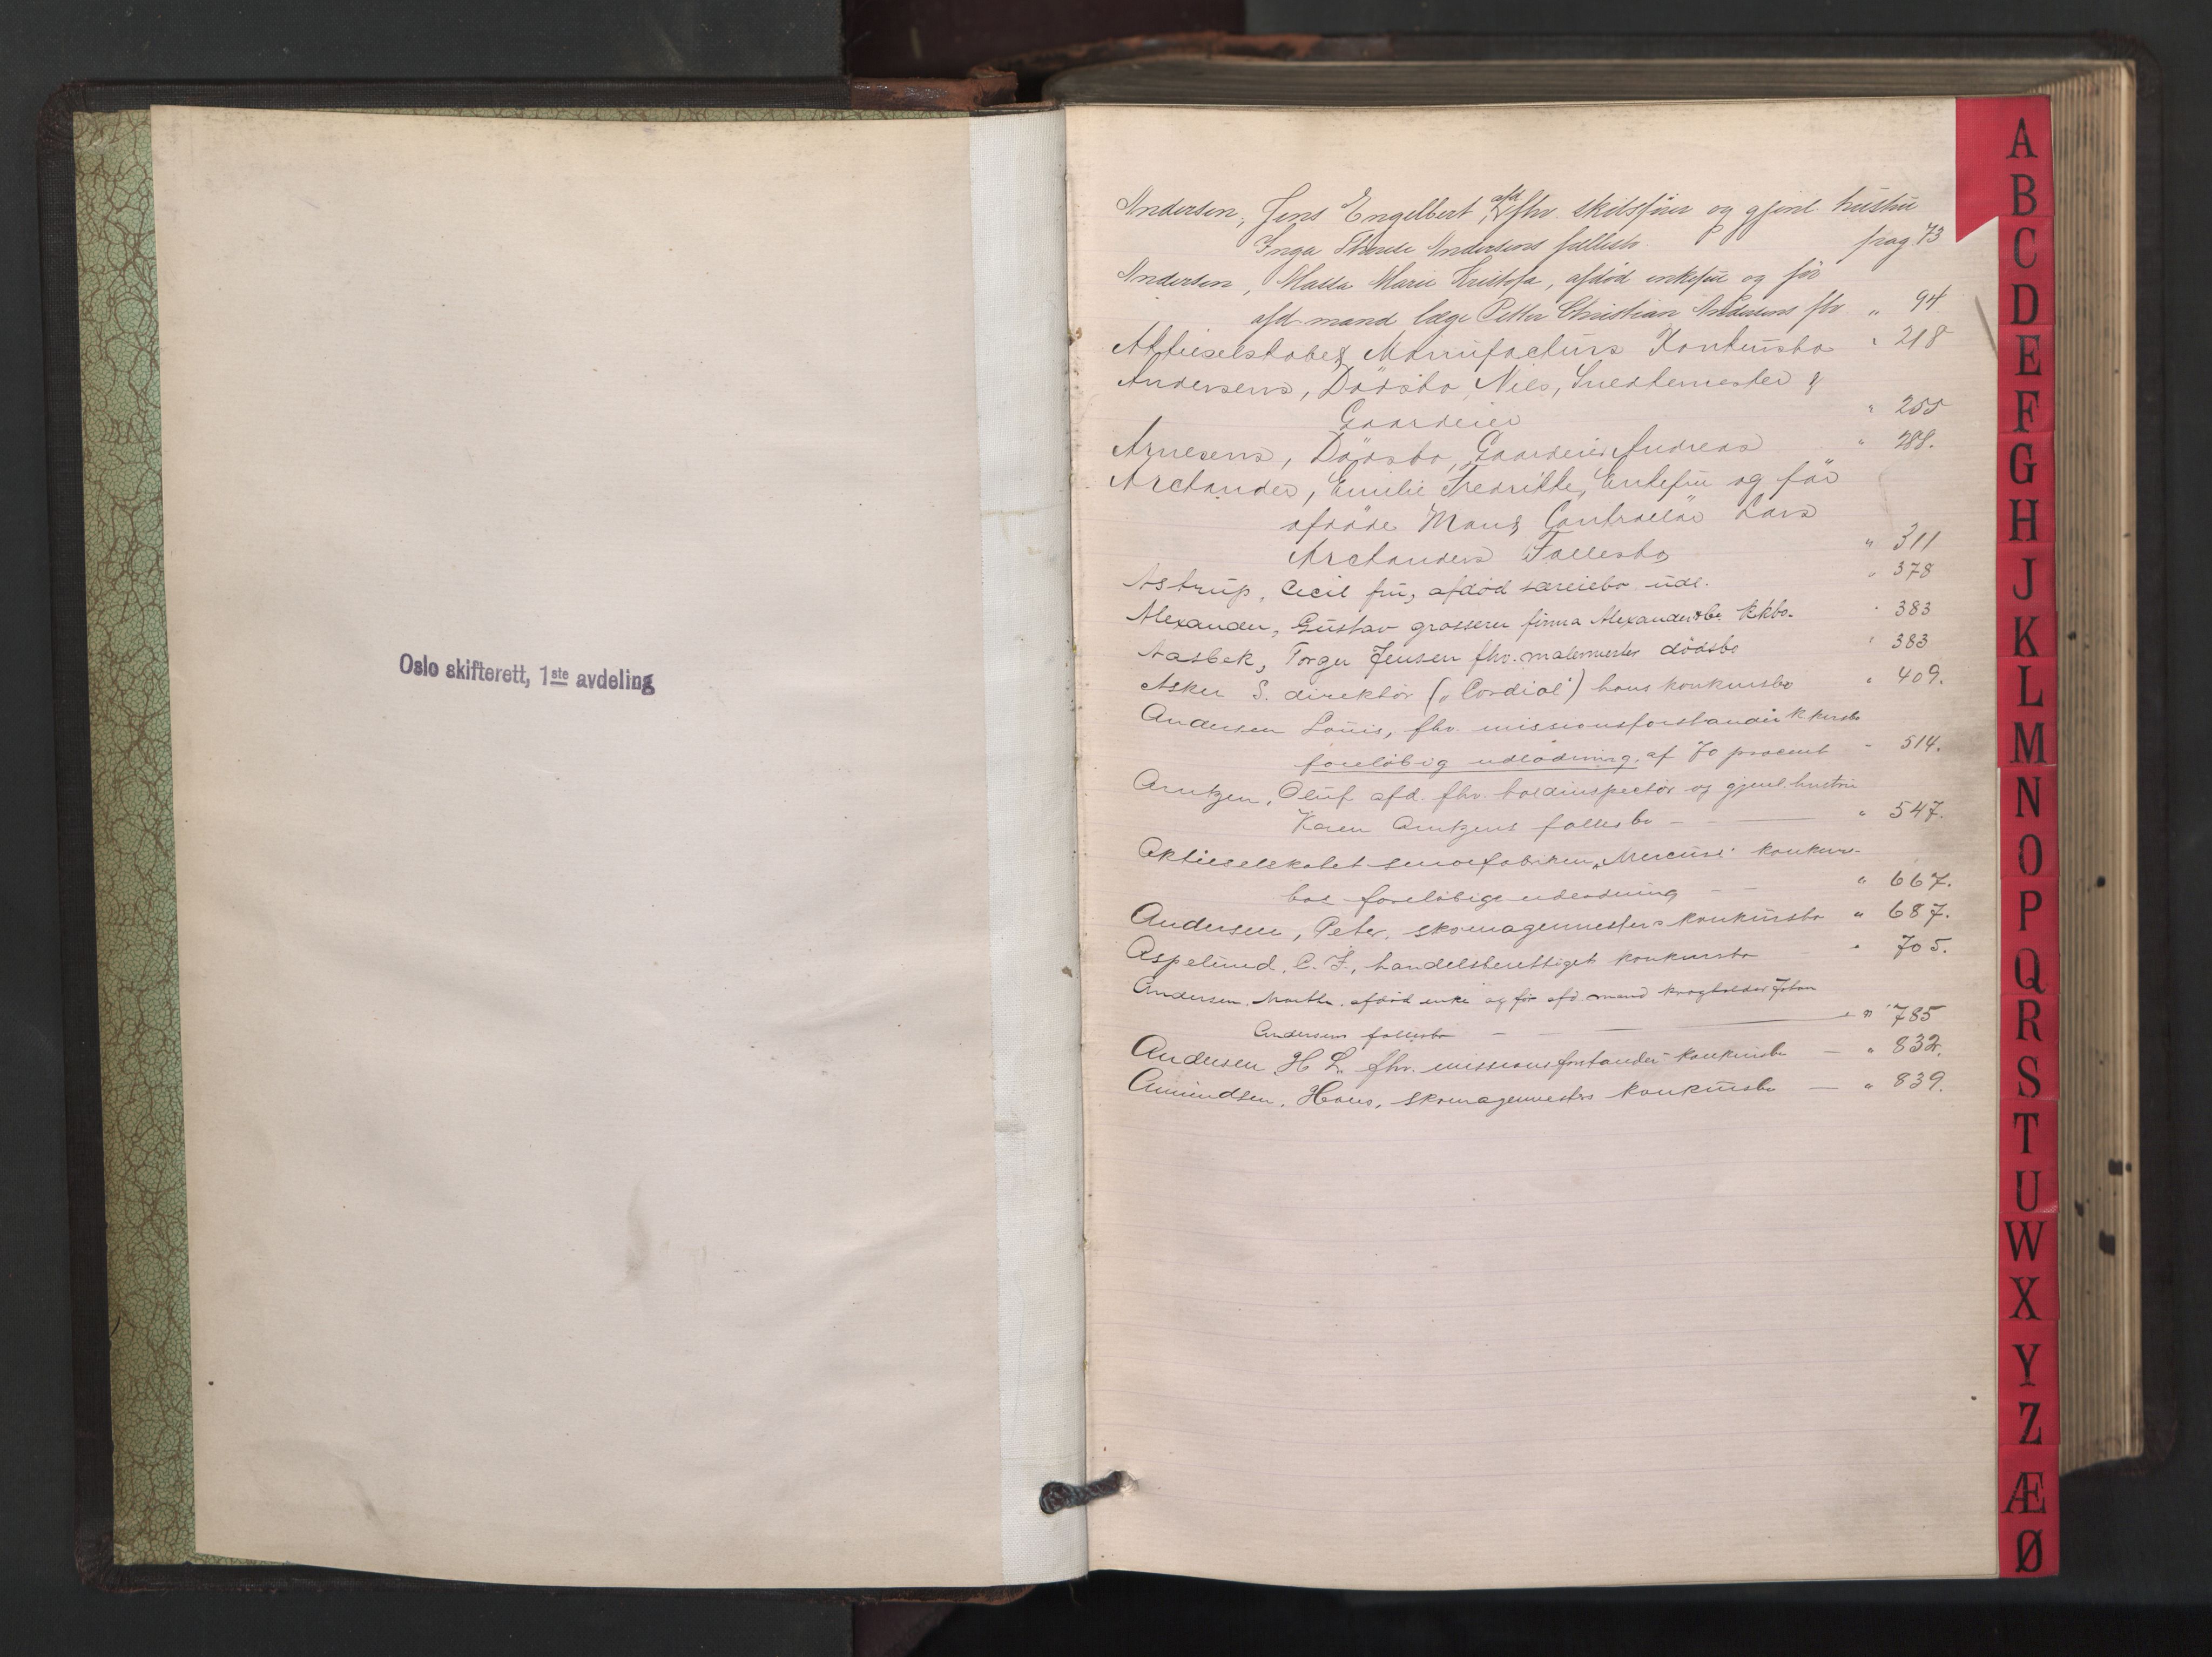 Oslo skifterett, 1ste avdeling
Andersen, Jens Engelbert, afd fhv. skibsfører og gjenl. hustru
Inga Andersens fellesbo. pag. 73
Andersen, Malla Marie Kristofa, afdød enkefru og før
afd mand læge Petter Christian Andersens fbo. " 94
Aktieselskabet Manufacturs Konkursbo " 218
Andersens, Dødsbo, Niels, Snedkermester &
Gaardeier " 255
Arnesens, Dødsbo, Gaardeier Andreas " 288.
Arctander, Emilie Fredrikke, Enkefru og før
afdøde Mand, Controllør Lars
Arctanders Fallesbo " 311
Astrup, Cecil fru, afdød særeiebo udl. " 378
Alexander, Gustav grosserer firma Alexander & Co. kkbo. " 383
Aasbek, Torger Jensen fhv. malermester dødsbo " 383
Asker S. direktør („Cordial") hans konkursbo " 409.
Andersen Louis, fhv. missionsforstander k.kursbo
foreløbig udlodning af 70 procent - 514.
Arntzen, Oluf afd. fhv. toldinspector og gjenl. hustru
Karen Arntzens fallesbo - - " 547.
Aktieselskabet senoefabriken „Mercur" konkurs-
bos foreløbige udlodning - - " 667.
Andersen, Peter, skomagermesters konkursbo " 687.
Aspelund, C. F., handelsberettiget konkursbo - " 705.
Andersen, Marthe, afdød enke og før afd. mand Johan
Andersens fallesbo - - " 785
Andersen H. L. fhv. missionsforstander konkursbo - " 832.
Amundsen, Hans, skomagermesters konkursbo - " 839.
A
B
C
D
E
F
G
H
J
K
L
M
N
O
P
Q
R
S
T
U
W
X
Y
Z
Æ
Ø